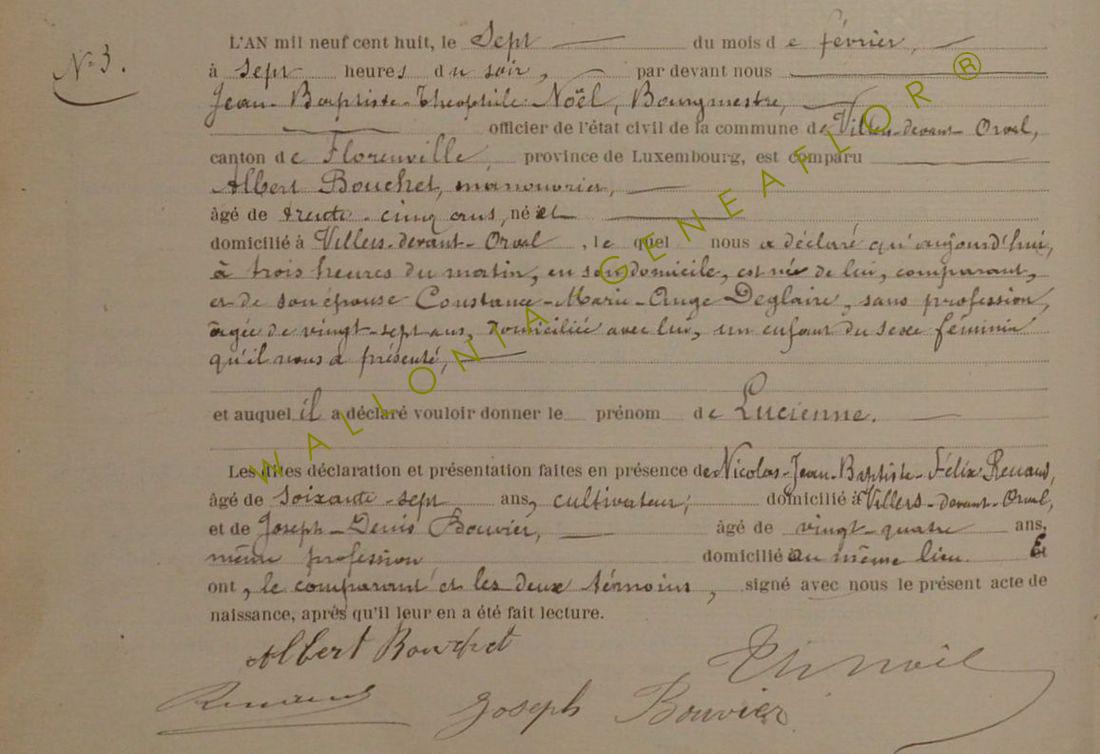 N° 3.
L'AN mil neuf cent huit, le Sept du mois de février,
à sept heures du soir, par devant nous
Jean-Baptiste-Théophile Noël, Bourgmestre,
officier de l'état civil de la commune de Villers-devant-Orval,
canton de Florenville, province de Luxembourg, est comparu
Albert Bouchet, manouvrier,
âgé de trente-cinq ans, né et
domicilié à Villers-devant-Orval, lequel nous a déclaré qu'aujourd'hui,
à trois heures du matin, en son domicile, est née de lui, comparant,
et de son épouse Constance-Marie-Ange Deglaire, sans profession,
âgée de vingt-sept ans, domiciliée avec lui, un enfant du sexe féminin
qu'il nous a présenté,
et auquel il a déclaré vouloir donner le prénom de Lucienne.
Les dites déclaration et présentation faites en présence de Nicolas-Jean-Baptiste-Félix Renaud,
âgé de soixante-sept ans, cultivateur, domicilié à Villers-devant-Orval,
et de Joseph-Denis Bouvier, âgé de vingt-quatre ans,
même profession domicilié au même lieu. Et
ont, le comparant et les deux témoins, signé avec nous le présent acte de
naissance, après qu'il leur en a été fait lecture.
Albert Bouchet
Th Noël
Renaud
Joseph Bouvier
WALLONIA GENEAFLOR ®